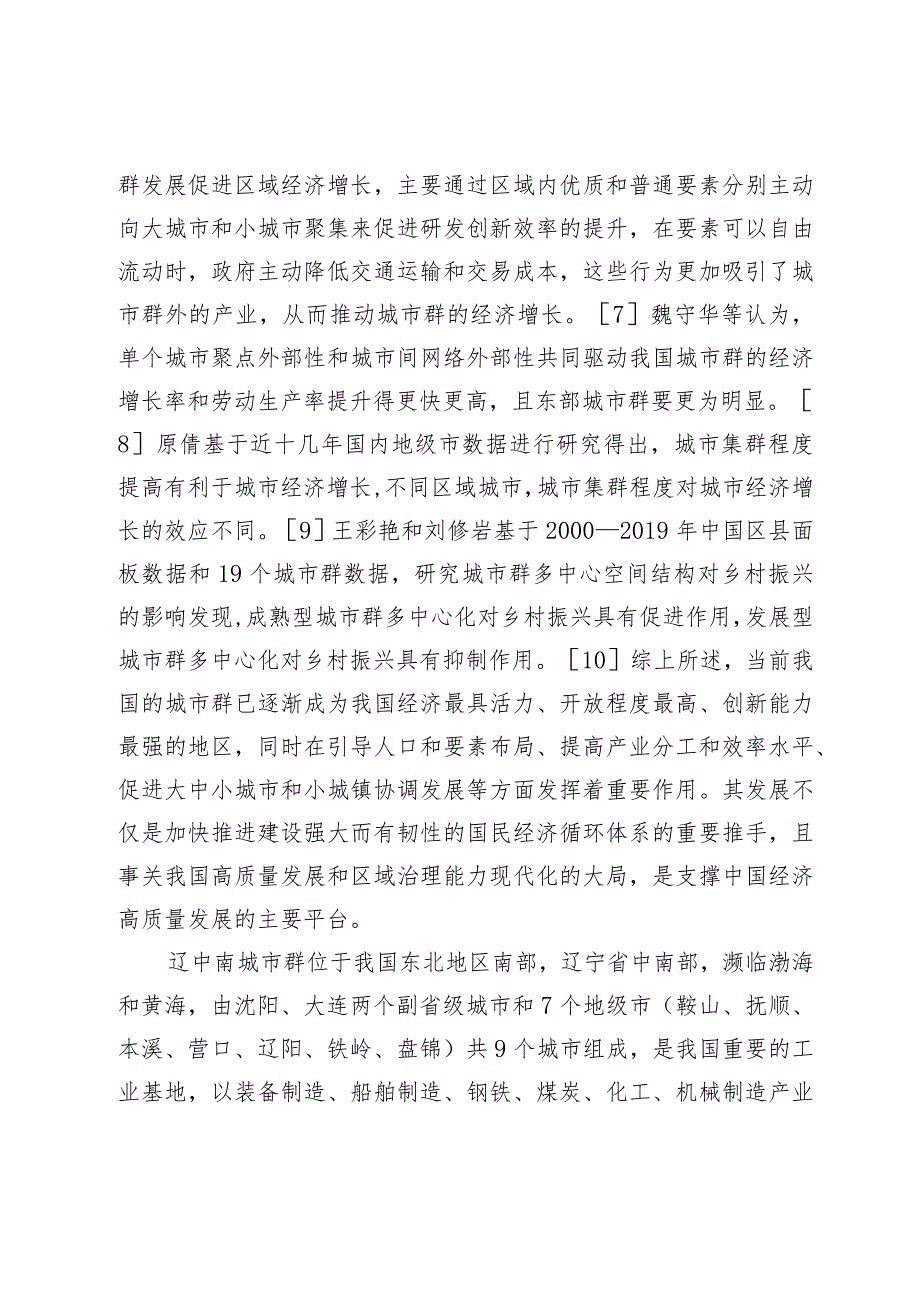 群发展促进区域经济增长，主要通过区域内优质和普通要素分别主动
向大城市和小城市聚集来促进研发创新效率的提升，在要素可以自由
流动时，政府主动降低交通运输和交易成本，这些行为更加吸引了城
市群外的产业，从而推动城市群的经济增长。［7］魏守华等认为，
单个城市聚点外部性和城市间网络外部性共同驱动我国城市群的经济
增长率和劳动生产率提升得更快更高，且东部城市群要更为明显。［
8］原倩基于近十几年国内地级市数据进行研究得出，城市集群程度
提高有利于城市经济增长,不同区域城市，城市集群程度对城市经济增
长的效应不同。［9］王彩艳和刘修岩基于 2000—2019 年中国区县面
板数据和 19 个城市群数据，研究城市群多中心空间结构对乡村振兴
的影响发现,成熟型城市群多中心化对乡村振兴具有促进作用，发展型
城市群多中心化对乡村振兴具有抑制作用。［10］综上所述，当前我
国的城市群已逐渐成为我国经济最具活力、开放程度最高、创新能力
最强的地区，同时在引导人口和要素布局、提高产业分工和效率水平、
促进大中小城市和小城镇协调发展等方面发挥着重要作用。其发展不
仅是加快推进建设强大而有韧性的国民经济循环体系的重要推手，且
事关我国高质量发展和区域治理能力现代化的大局，是支撑中国经济
高质量发展的主要平台。
辽中南城市群位于我国东北地区南部，辽宁省中南部，濒临渤海
和黄海，由沈阳、大连两个副省级城市和 7 个地级市（鞍山、抚顺、
本溪、营口、辽阳、铁岭、盘锦）共 9 个城市组成，是我国重要的工
业基地，以装备制造、船舶制造、钢铁、煤炭、化工、机械制造产业